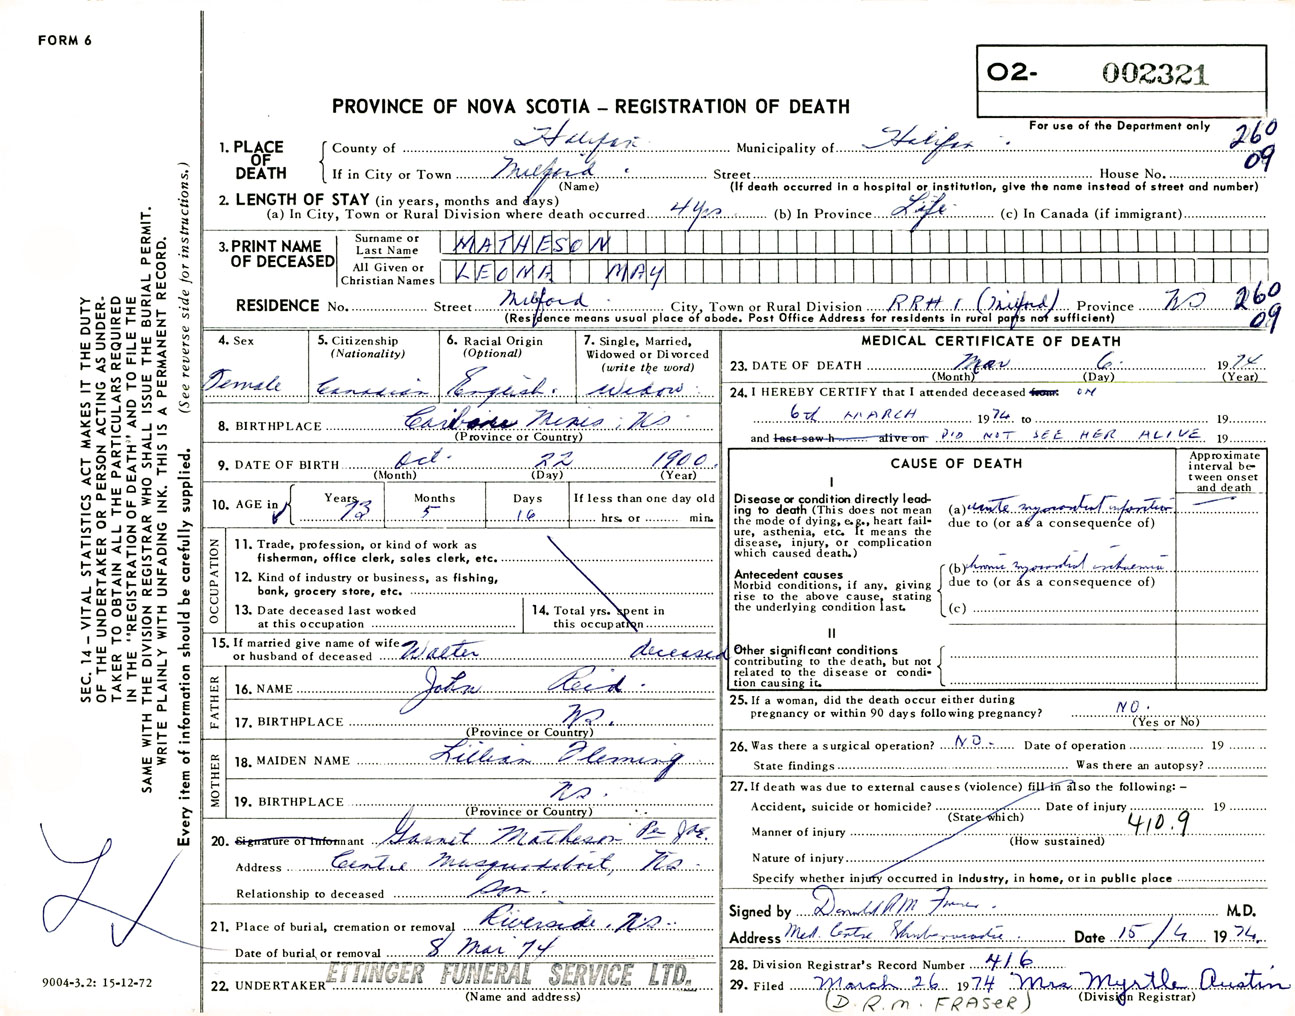 FORM 6
02- 002321
PROVINCE OF NOVA SCOTIA – REGISTRATION OF DEATH
For use of the Department only
260
09
1. PLACE OF DEATH
County of Halifax Municipality of Halifax
If in City or Town Milford Street House No.
(Name) (If death occurred in a hospital or institution, give the name instead of street and number)
2. LENGTH OF STAY (in years, months and days)
(a) In City, Town or Rural Division where death occurred 4 yrs (b) In Province Life (c) In Canada (if immigrant)
3. PRINT NAME OF DECEASED
Surname or Last Name MATHESON
All Given or Christian Names LEONA MAY
RESIDENCE No. Street Milford City, Town or Rural Division RR# 1 (Milford) Province NS
260
09
(Residence means usual place of abode. Post Office Address for residents in rural parts not sufficient)
4. Sex
Female
5. Citizenship
(Nationality)
Canadian
6. Racial Origin
(Optional)
English.
7. Single, Married,
Widowed or Divorced
(write the word)
Widow
8. BIRTHPLACE Caribou Mines, NS
(Province or Country)
9. DATE OF BIRTH Oct. 22 1900
(Month) (Day) (Year)
10. AGE in
Years Months Days If less than one day old
73 5 16 hrs. or min.
OCCUPATION
11. Trade, profession, or kind of work as
fisherman, office clerk, sales clerk, etc.
12. Kind of industry or business, as fishing,
bank, grocery store, etc.
13. Date deceased last worked
at this occupation
14. Total yrs. spent in
this occupation
15. If married give name of wife
or husband of deceased Walter deceased
FATHER
16. NAME John Reid
17. BIRTHPLACE NS.
(Province or Country)
MOTHER
18. MAIDEN NAME Lillian Fleming
19. BIRTHPLACE NS.
(Province or Country)
20. Signature of Informant Garnet Matheson Per
Address Centre Musquodoboit, NS
Relationship to deceased Son.
21. Place of burial, cremation or removal Riverside, NS.
Date of burial or removal 8 Mar 74
22. UNDERTAKER ETTINGER FUNERAL SERVICE LTD.
(Name and address)
MEDICAL CERTIFICATE OF DEATH
23. DATE OF DEATH Mar 6 1974
(Month) (Day) (Year)
24. I HEREBY CERTIFY that I attended deceased from: ON
6th MARCH 1974 to 19
and last saw h alive on DID NOT SEE HER ALIVE 19
CAUSE OF DEATH
Approximate
interval be-
tween onset
and death
I
Disease or condition directly lead-
ing to death (This does not mean
the mode of dying, e.g., heart fail-
ure, asthenia, etc. It means the
disease, injury, or complication
which caused death.)
(a) acute myocardial infarction
due to (or as a consequence of)
Antecedent causes
Morbid conditions, if any, giving
rise to the above cause, stating
the underlying condition last.
(b) chronic myocardial ischaemia
due to (or as a consequence of)
(c)
II
Other significant conditions
contributing to the death, but not
related to the disease or condi-
tion causing it.
25. If a woman, did the death occur either during
pregnancy or within 90 days following pregnancy? NO.
(Yes or No)
26. Was there a surgical operation? NO. Date of operation 19
State findings Was there an autopsy?
27. If death was due to external causes (violence) fill in also the following: –
Accident, suicide or homicide? Date of injury 19
(State which)
Manner of injury 410.9
(How sustained)
Nature of injury
Specify whether injury occurred in Industry, in home, or in public place
Signed by Donald R M Fraser M.D.
Address Med. Centre Shubenacadie Date 15/4 1974.
28. Division Registrar's Record Number 416
29. Filed March 26 1974 Mrs Myrtle Austin
(D.R.M. FRASER) (Division Registrar)
SEC. 14 – VITAL STATISTICS ACT MAKES IT THE DUTY
OF THE UNDERTAKER OR PERSON ACTING AS UNDER-
TAKER TO OBTAIN ALL THE PARTICULARS REQUIRED
IN THE "REGISTRATION OF DEATH" AND TO FILE THE
SAME WITH THE DIVISION REGISTRAR WHO SHALL ISSUE THE BURIAL PERMIT.
WRITE PLAINLY WITH UNFADING INK. THIS IS A PERMANENT RECORD.
Every item of information should be carefully supplied. (See reverse side for instructions.)
9004-3.2: 15-12-72